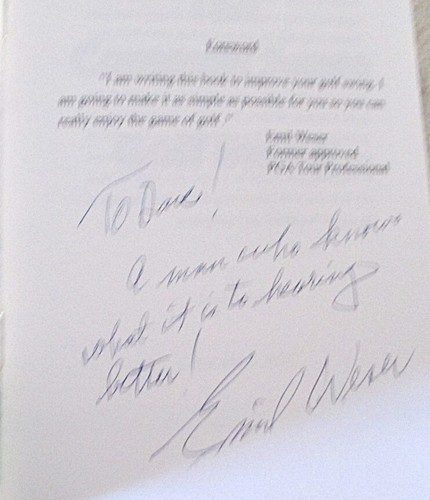 Foreword
"I am writing this book to improve your golf swing. I
am going to make it as simple as possible for you so you can
really enjoy the game of golf."
Emil Weser
Former approved
PGA Tour Professional
To Dave!
A man who knows
what it is to hearing
better!
Emil Weser